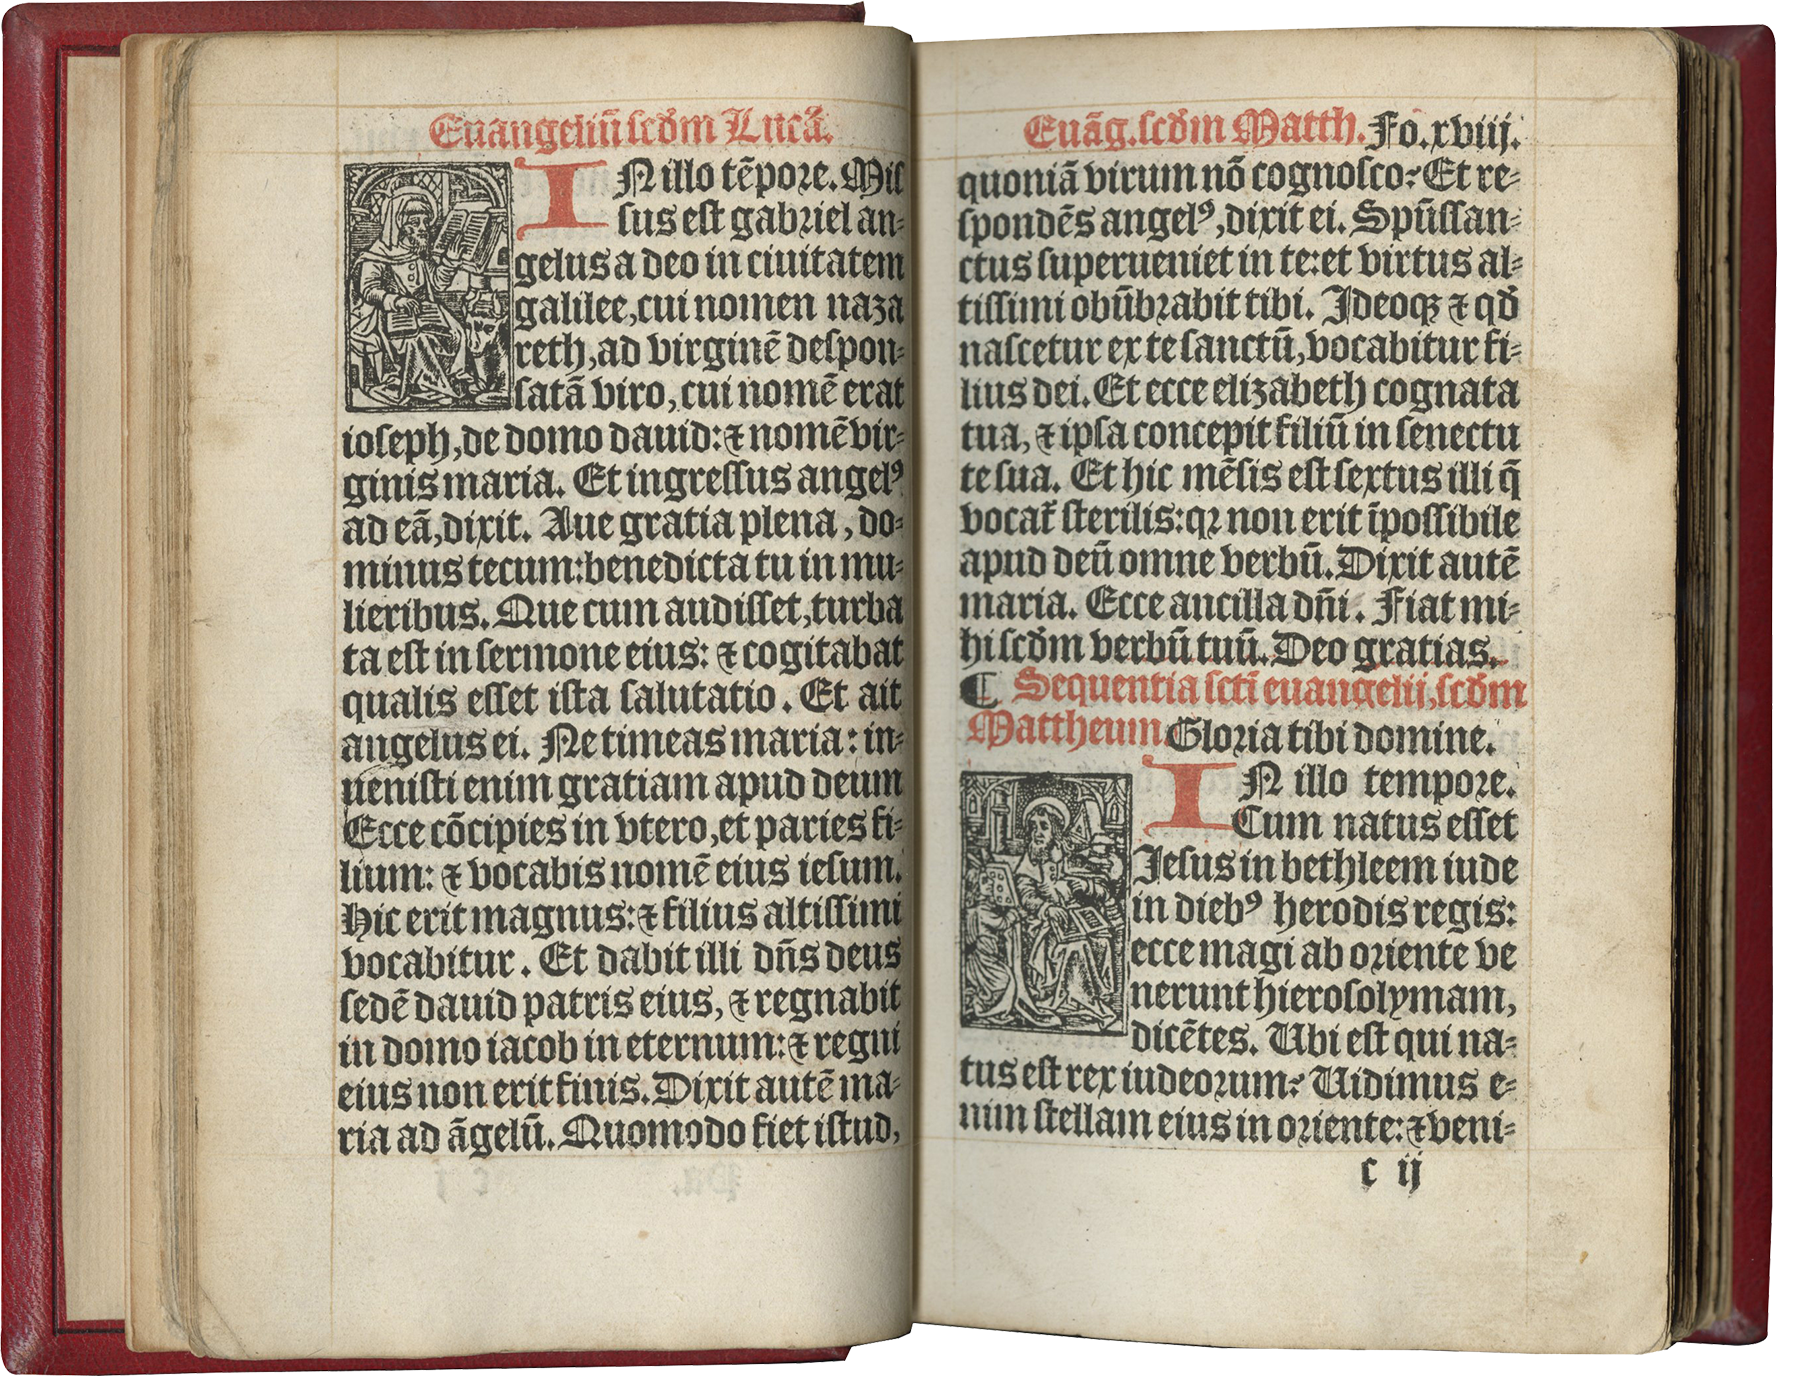 Euangeliū scd̄m Lucā.
IN illo tēpore. Mis
sus est gabriel an-
gelus a deo in ciuitatem
galilee, cui nomen naza
reth, ad virginē despon-
satā viro, cui nomē erat
ioseph, de domo dauid: ⁊ nomē vir-
ginis maria. Et ingressus angelꝰ
ad eā, dixit. Aue gratia plena, do-
minus tecum: benedicta tu in mu-
lieribus. Que cum audisset, turba
ta est in sermone eius: ⁊ cogitabat
qualis esset ista salutatio. Et ait
angelus ei. Ne timeas maria: in-
uenisti enim gratiam apud deum
Ecce cōcipies in vtero, et paries fi-
lium: ⁊ vocabis nomē eius iesum.
Hic erit magnus: ⁊ filius altissimi
vocabitur. Et dabit illi dn̄s deus
sedē dauid patris eius, ⁊ regnabit
in domo iacob in eternum: ⁊ regni
eius non erit finis. Dixit autē ma-
ria ad āgelū. Quomodo fiet istud,
Euāg. scd̄m Matth. Fo. xviij.
quoniā virum nō cognosco? Et re-
spondēs angelꝰ, dixit ei. Spūssan-
ctus superueniet in te: et virtus al-
tissimi obūbrabit tibi. Ideoqꝫ ⁊ qd̄
nascetur ex te sanctū, vocabitur fi-
lius dei. Et ecce elizabeth cognata
tua, ⁊ ipsa concepit filiū in senectu
te sua. Et hic mēsis est sextus illi q̄
vocat̄ sterilis: qꝛ non erit īpossibile
apud deū omne verbū. Dixit autē
maria. Ecce ancilla dn̄i. Fiat mi-
hi scd̄m verbū tuū. Deo gratias.
¶ Sequentia scti̅ euangelii, scd̄m
Mattheum. Gloria tibi domine.
IN illo tempore.
Cum natus esset
Jesus in bethleem iude
in diebꝰ herodis regis:
ecce magi ab oriente ve
nerunt hierosolymam,
dicētes. Ubi est qui na-
tus est rex iudeorum? Uidimus e-
nim stellam eius in oriente: ⁊ veni-
c ij